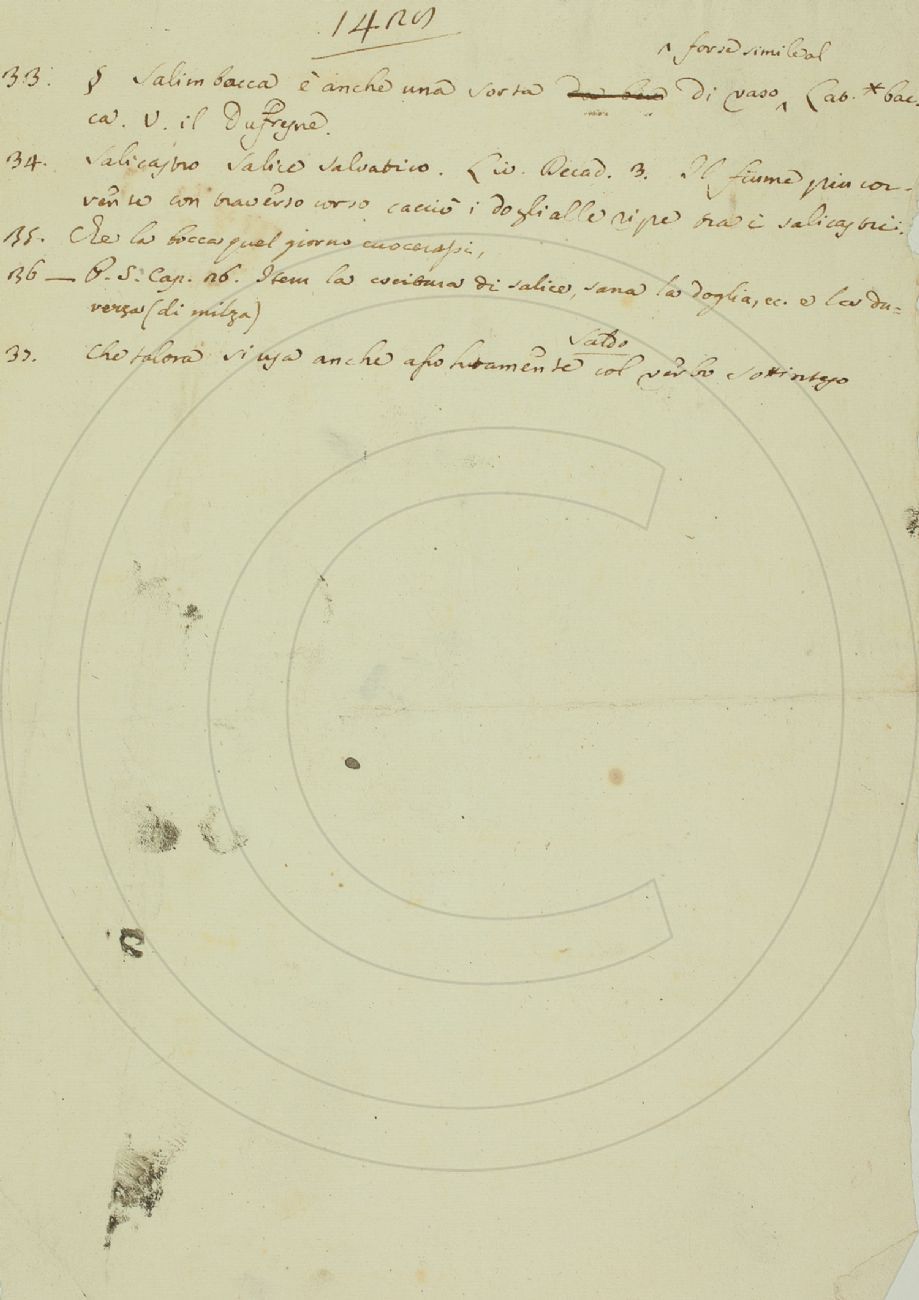 1429
^ forse simile al
33. § Salimbacca è anche una sorta di vaso ^ Lat. * bac-
ca. V. il Dufresne.
34. Salicastro Salice salvatico. Liv. Decad. 3. Il fiume piu cor-
rente con traverso corso cacciò i dogli alle ripe tra i salicastri.
35. Che la bocca quel giorno cuocerassi,
36 — P. S. Cap. 26. Item la cocitura di salice, sana la doglia, ec. e la du-
rezza (di milza)
Saldo
37. Che talora si usa anche assolutamente col verbo sottinteso